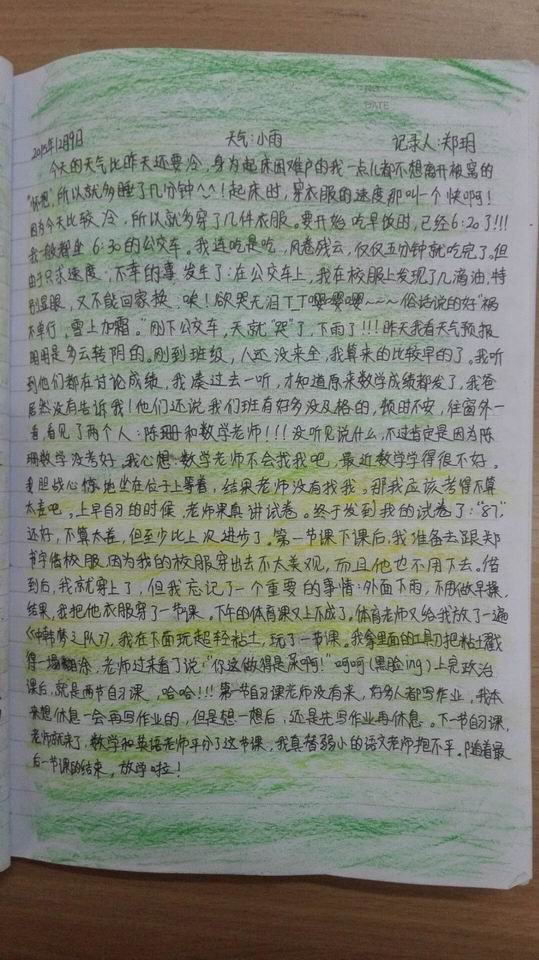 DATE
2015年12月9日 天气:小雨 记录人:郑玥
今天的天气比昨天还要冷,身为起床困难户的我一点儿都不想离开被窝的
"怀抱",所以就多睡了几分钟^^!起床时,穿衣服的速度那叫一个快啊!
因为今天比较冷,所以就多穿了几件衣服。要开始吃早饭时,已经6:20了!!!
我一般都坐6:30的公交车。我连吃是吃,风卷残云,仅仅五分钟就吃完了。但
由于只求速度,不幸的事发生了:在公交车上,我在校服上发现了几滴油,特
别显眼,又不能回家换,唉!欲哭无泪T_T嘤嘤嘤~~~俗话说的好"祸
不单行,雪上加霜。"刚下公交车,天就"哭"了,下雨了!!!昨天我看天气预报
明明是多云转阴的。刚到班级,人还没来全,我算来的比较早的了。我听
到他们都在讨论成绩,我凑过去一听,才知道原来数学成绩都发了,我爸
居然没有告诉我!他们还说我们班有好多没及格的,顿时不安,往窗外一
看,看见了两个人:陈珊和数学老师!!!没听见说什么,不过肯定是因为陈
珊数学没考好,我心想:数学老师不会找我吧,最近数学学得很不好。
胆战心惊地坐在位子上等着,结果老师没有找我。那我应该考得不算
太差吧。上早自习的时候,老师果真讲试卷。终于发到我的试卷了:"87".
还好,不算太差,但至少比上次进步了。第一节课下课后,我准备去跟郑
书宇借校服,因为我的校服穿出去不太美观,而且他也不用下去。借
到后,我就穿上了,但我忘记了一个重要的事情:外面下雨,不用做早操,
结果,我把他衣服穿了一节课。下午的体育课又上不成了。体育老师又给我放了一遍
《中韩梦之队7》,我在下面玩超轻粘土,玩了一节课。我拿里面的工具刀把粘土戳
得一塌糊涂,老师过来看了说:"你这做得是屎啊!"呵呵(黑脸ing)上完政治
课后,就是两节自习课,哈哈!!!第一节自习课老师没有来,好多人都写作业,我本
来想休息一会再写作业的,但是想一想后,还是先写作业再休息。下一节自习课,
老师就来了,数学和英语老师平分了这节课,我真替弱小的语文老师抱不平。随着最
后一节课的结束,放学啦!